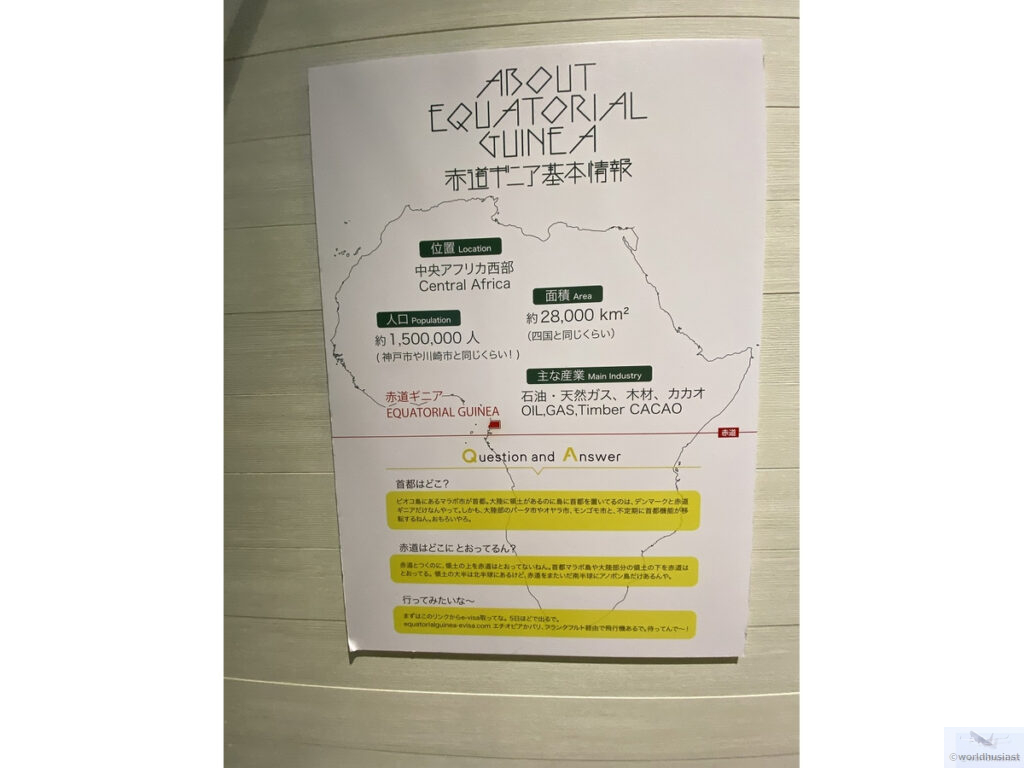 ABOUT
EQUATORIAL
GUINEA
赤道ギニア基本情報
位置 Location
中央アフリカ西部
Central Africa
面積 Area
約28,000 km²
（四国と同じくらい）
人口 Population
約1,500,000 人
（神戸市や川崎市と同じくらい！）
主な産業 Main Industry
石油・天然ガス、木材、カカオ
OIL,GAS,Timber CACAO
赤道ギニア
EQUATORIAL GUINEA
赤道
Question and Answer
首都はどこ？
ビオコ島にあるマラボ市が首都。大陸に領土があるのに島に首都を置いてるのは、デンマークと赤道
ギニアだけなんやって。しかも、大陸部のバータ市やオヤラ市、モンゴモ市と、不定期に首都機能が移
転するねん。おもろいやろ。
赤道はどこに とおってるん？
赤道とつくのに、領土の上を赤道はとおってないねん。首都マラボ島や大陸部分の領土の下を赤道は
とおってる。領土の大半は北半球にあるけど、赤道をまたいだ南半球にアノボン島だけあるんや。
行ってみたいな〜
まずはこのリンクからe-visa取ってな。5日ほどで出るで。
equatorialguinea-evisa.com エチオピアかパリ、フランクフルト経由で飛行機あるで。待ってんで〜！
©worldhusiast